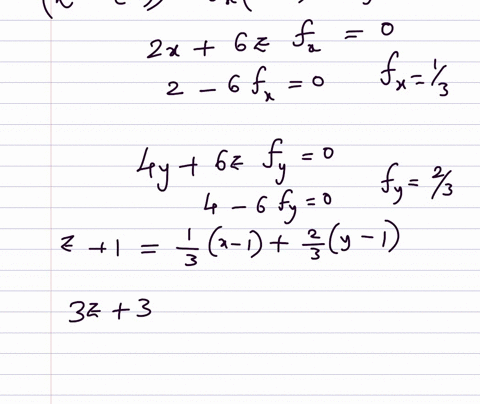 2x + 6z fx = 0
2 - 6 fx = 0 fx = 1/3
4y + 6z fy = 0
4 - 6 fy = 0 fy = 2/3
z + 1 = 1/3 (x-1) + 2/3 (y - 1)
3z + 3